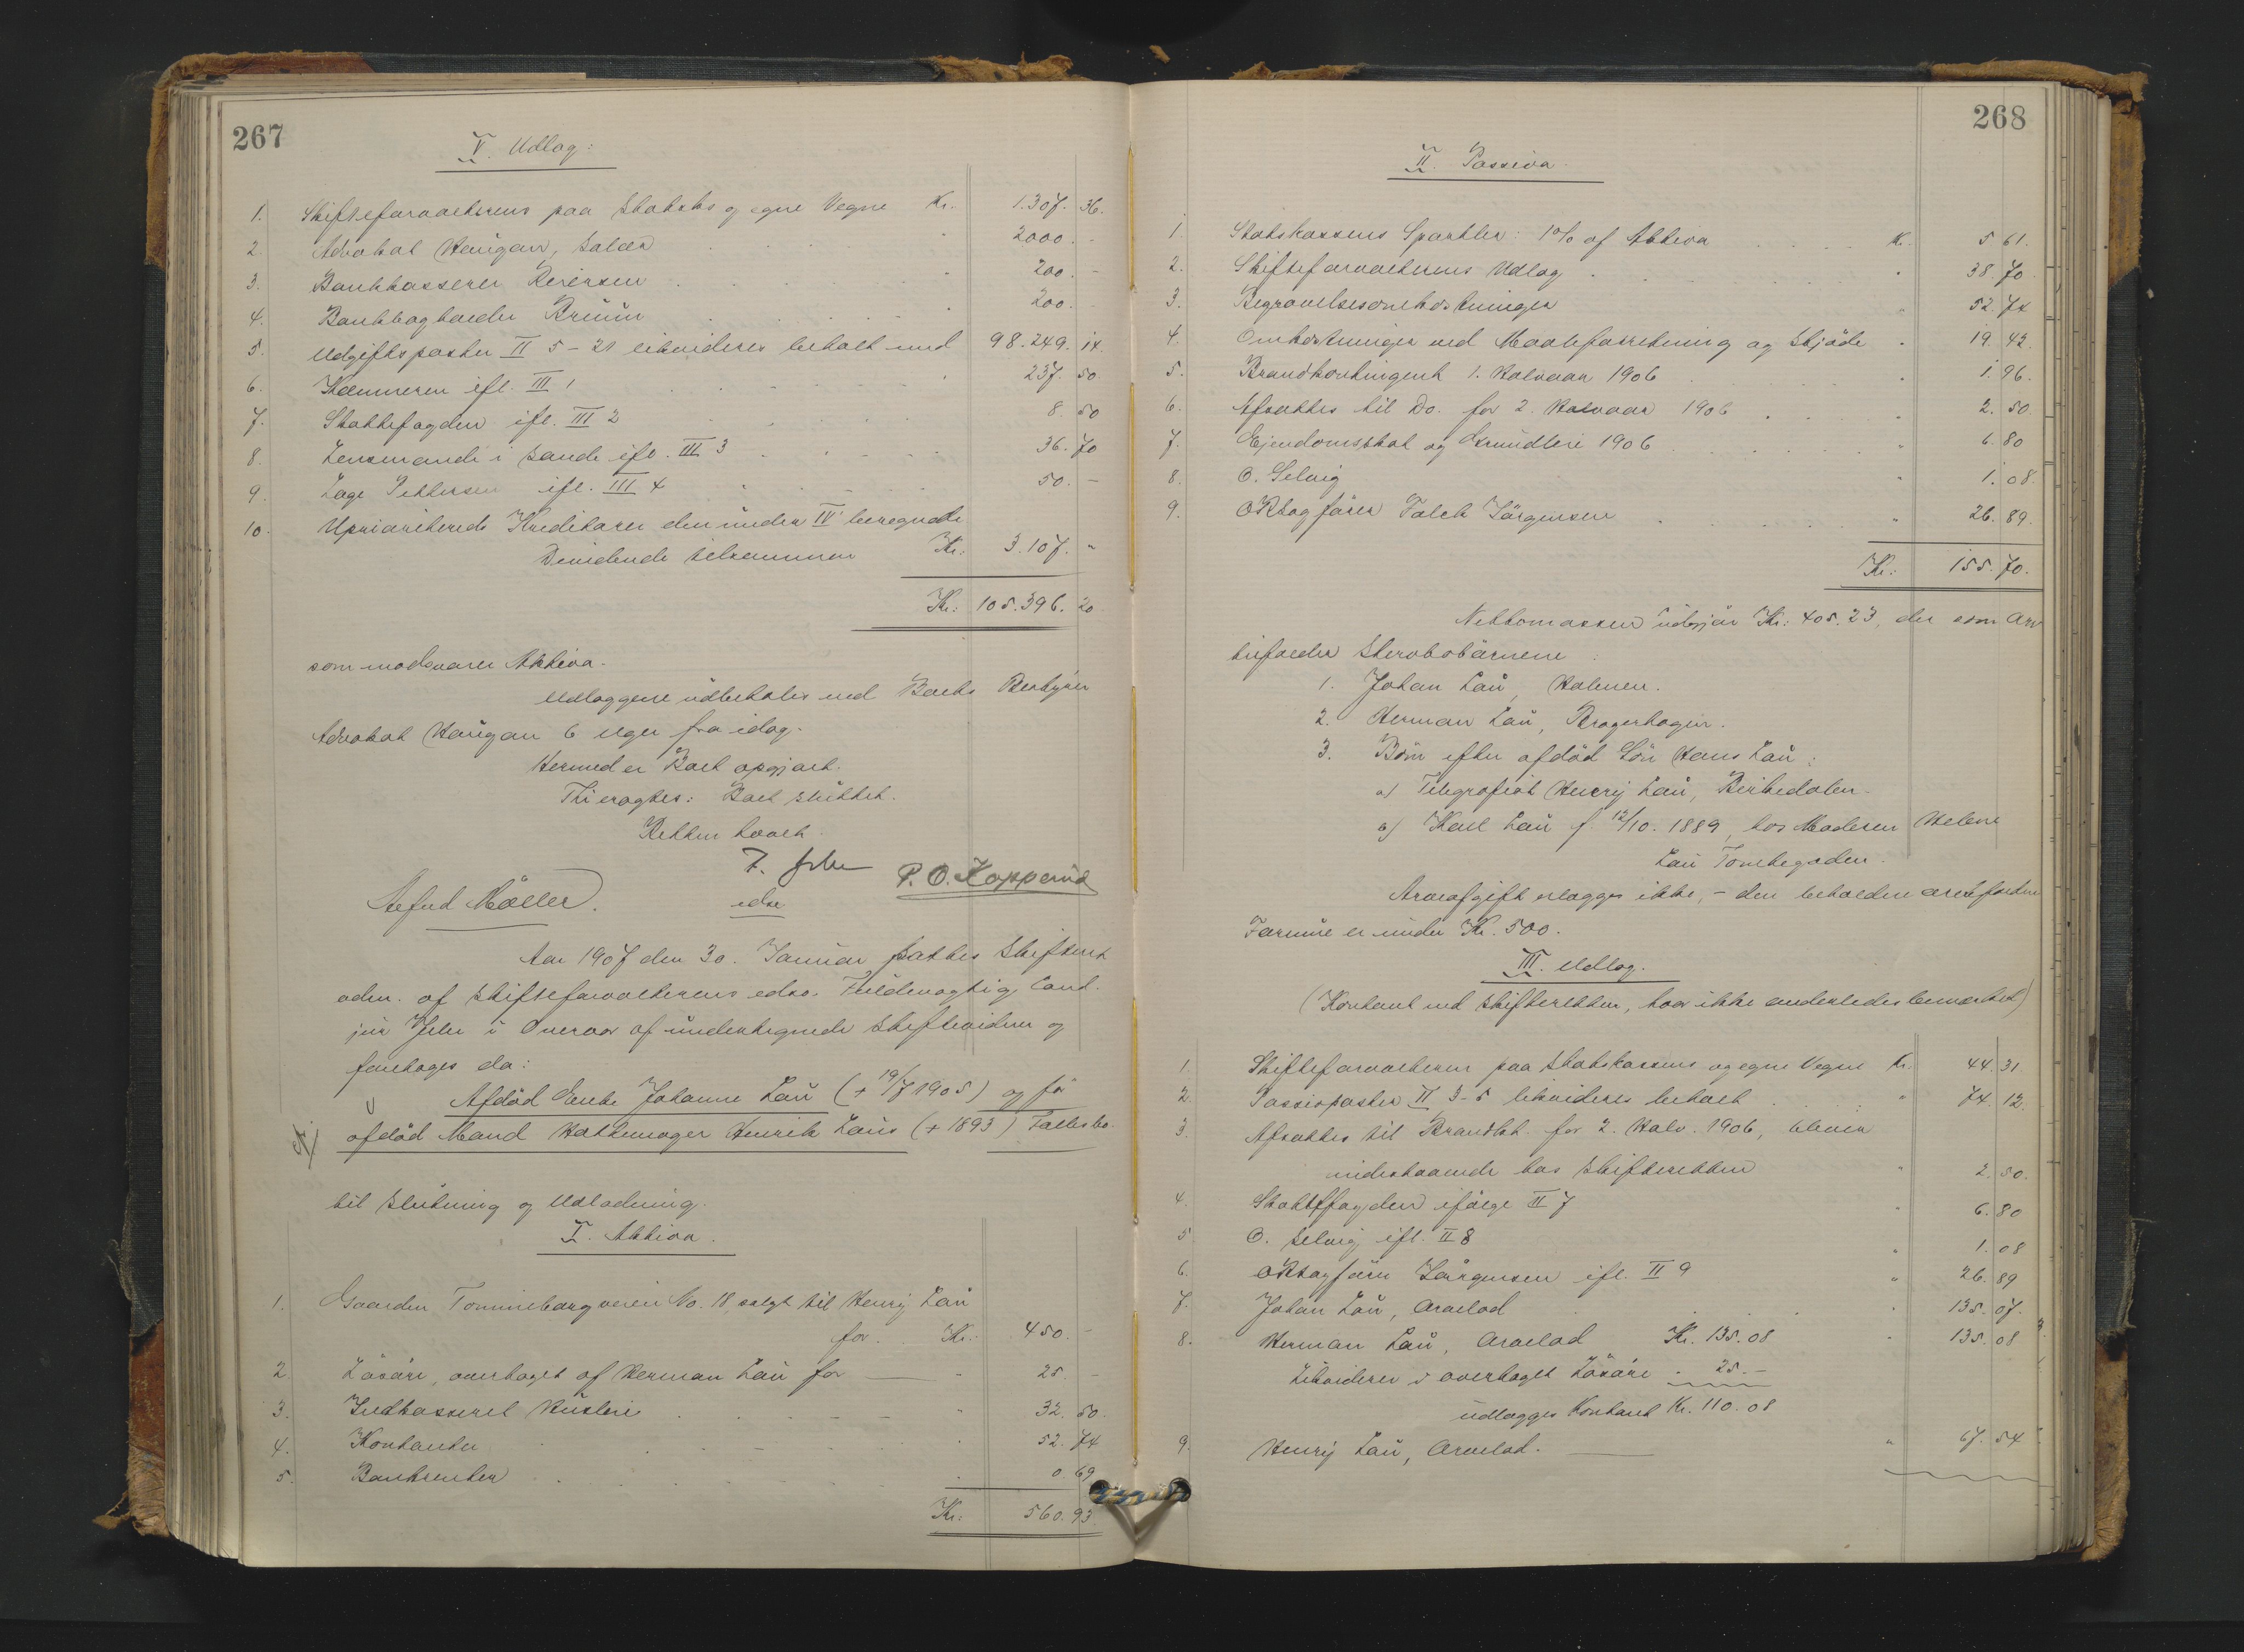 267
V. Udlæg:
1. Skifteforvalteren paa Statens og egne Vegne Kr. 1.307. 36.
2. Advokat Haugan, Salær " 2000. -
3. Bankkasserer Reiersen " 200. -
4. Bankbogholder Bruun " 200. -
5. Udgiftsposter II 5-21 likvideres betalt med 98.249. 14.
6. Kæmneren ifl. III 1 " 237. 50
7. Skattefogden ifl. III 2 8. 50
8. Lensmanden i Sande ifl. III 3 36. 70
9. Lage Pettersen ifl. III 4 " 50. -
10. Uprioriterede Kreditorer den under IV beregnede
Dividende tilsammen Kr: 3.107. "
Kr: 105.396. 20
som modsvarer Aktiva.
Udlæggene udbetales ved Boets Bestyrer
Advokat Haugan 6 Uger fra idag.
Hermed er Boet opgjort.
Thi eragtes: Boet sluttet.
Retten hævet.
P. O. Kopperud
edsv
Møller.
Aar 1907 den 30. Januar sattes Skifteret
adm. af Skifteforvalterens edsv. Fuldmægtig, Cand.
jur. i Overvær af undertegnede Skiftevidner og
foretoges da:
Afdød Enke Johanne Lau (+ 19/7 1905) og før
afdød Mand Hattemager Henrik Laus (+ 1893) Fællesbo.
til Slutning og Udlodning.
I. Aktiva.
1. Gaarden Tomineborgveien No. 18, solgt til Henry Lau
for. Kr: 450. -
2. Løsøre, overtaget af Herman Lau for " 25. -
3. Indkasseret Husleie " 32. 50.
4. Kontanter " 52. 74
5. Bankrenter " 0. 69
Kr: 560. 93
268
II. Passiva.
1. Statskassens Sportler: 1% af Aktiva Kr. 5 61.
2. Skifteforvalterens Udlæg " 38. 70
3. Begravelsesomkostninger " 52. 74
4. Omkostninger ved Maaleforretning og Skjøde " 19. 42
5. Brandkontingent 1. Halvaar 1906 " 1. 96.
6. Afsættes til Do. for 2. Halvaar 1906 " 2. 50.
7. Ejendomsskat og Grundleie 1906 " 6. 80
8. O. Selvig " 1. 08.
9. ORsagfører Falck Jørgensen " 26. 89.
Kr: 155. 70.
Nettomassen udgjør Kr: 405.23, der som Arv
tilfalder Stervbobørnene:
1. Johan Lau, Holmen.
2. Herman Lau, Bragerhagen.
3. Børn efter afdød Søn Hans Lau:
a) Telegrafist Henry Lau, Birkedalen.
b) Karl Lau f. 12/10. 1889, hos Moderen Helene
Lau Tomtegaden.
Arveafgift erlægges ikke, - den beholdne arvefaldne
Formue er under Kr. 500.
III. Udlæg.
(Kontant ved Skifteretten, hvor ikke anderledes bemærket)
1. Skifteforvalteren paa Statskassens og egne Vegne Kr. 44. 31
2. Passivposter II 3-5 likvideres betalt " 74. 12.
3. Afsættes til Brandkt. for 2. Halv. 1906, bliver
indestaaende hos Skifteretten " 2. 50.
4. Skattefogden ifølge II 7 " 6. 80
5. O. Selvig ifl. II 8 " 1. 08
6. ORsagfører Jørgensen ifl. II 9 " 26. 89
7. Johan Lau, Arvelod " 135. 07.
8. Herman Lau, Arvelod Kr. 135.08 " 135. 08
Likviderer i overtaget Løsøre " 25. -
udlægges Kontant Kr. 110.08
9. Henry Lau, Arvelod. " 67. 54